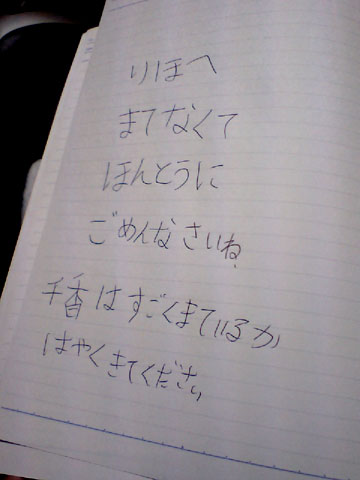 りほへ
まてなくて
ほんとうに
ごめんなさいね.
千香はすごくまているか
はやくきてください